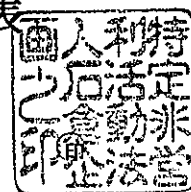 特定非営
利活動法
人石倉企
画之印